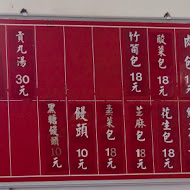 肉包18元
酸菜包18元
竹筍包18元
貢丸湯30元
花生包18元
芝麻包18元
菜包18元
饅頭10元
黑糖饅頭10元